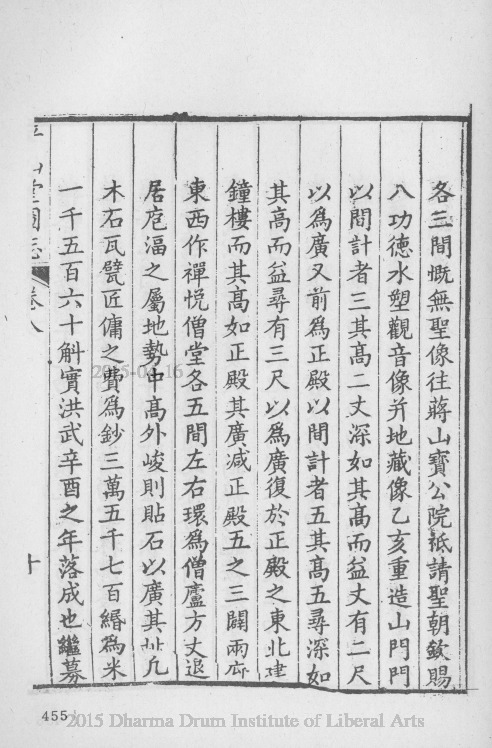 各三間慨無聖像往蔣山寶公院祇請聖朝欽賜
八功德水塑觀音像并地藏像乙亥重造山門門
以間計者三其高二丈深如其高而益丈有二尺
以爲廣又前爲正殿以間計者五其高五尋深如
其高而益尋有三尺以爲廣復於正殿之東北建
鐘樓而其高如正殿其廣減正殿五之三闢兩廡
東西作禪悅僧堂各五間左右環爲僧廬方丈退
居庖湢之屬地勢中高外峻則貼石以廣其址凡
木石瓦甓匠傭之費爲鈔三萬五千七百緡爲米
一千五百六十斛實洪武辛酉之年落成也繼募
山堂圖志
卷八
十
455
2015-04-16
2015 Dharma Drum Institute of Liberal Arts